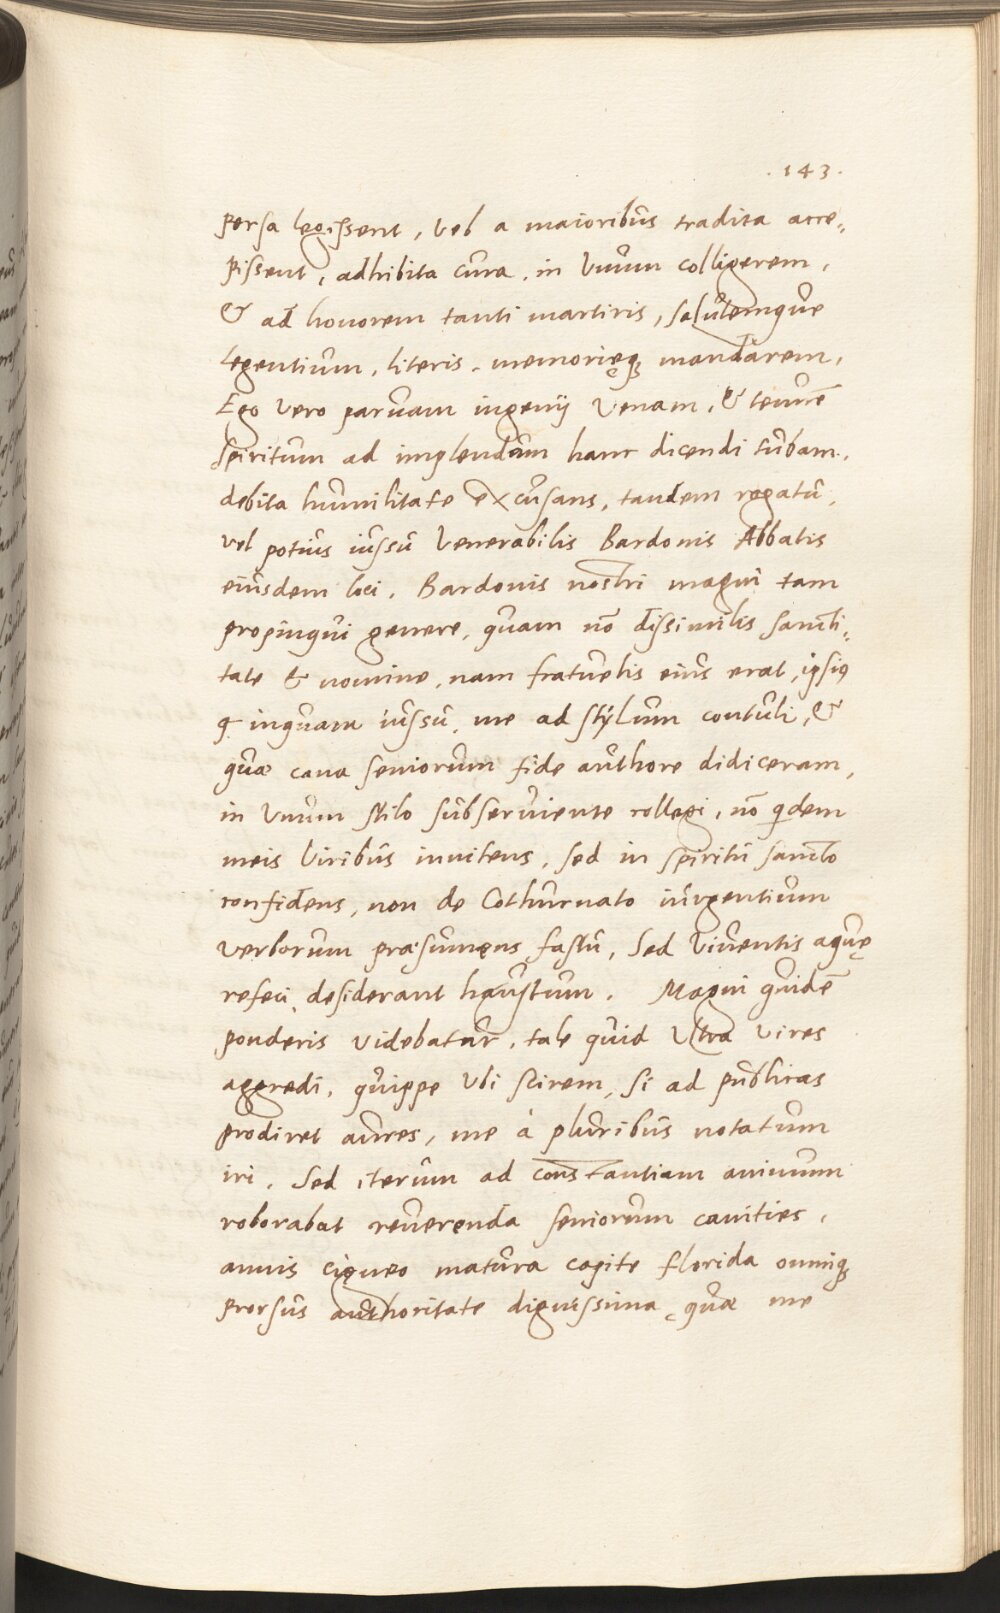 .143.
persa legissent, vel a maioribus tradita acce„
pissent, adhibita cura, in Vnum colligerem,
& ad honorem tanti martiris, salutemque
legentium, literis, memorięq₃ mandarem,
Ego vero paruam ingenij Venam, & tenuē
spiritum ad implendam hanc dicendi turbam,
debita humilitate excusans, tandem rogatu,
vel potius iussu Venerabilis Bardonis Abbatis
eiusdem loci, Bardonis nostri magni tam
propinqui genere, quam nō dissimilis sancti„
tate & nomine, nam fratruelis eius erat, ipsiꝰ
inquam iussu, me ad stÿlum contuli, &
quæ cana seniorum fide authore didiceram,
in Vnum stilo subseruiente collegi, nō qdem
meis Viribus innitens, sed in spiritu sancto
confidens, non de Cothurnato iurgentium
verborum præsumęns fastu, Sed Viuentis aquę
refeci desiderant haustum. Magni quidē
ponderis videbatur, tale quid Vltra vires
aggredi, quippe Vbi scirem, si ad publicas
prodiret aures, me à pluribus notatum
iri. Sed iterum ad constantiam animum
roborabat reuerenda seniorum canities,
annis cigneo matura capite florida omniq₃
prorsus authoritate dignissima, quæ me